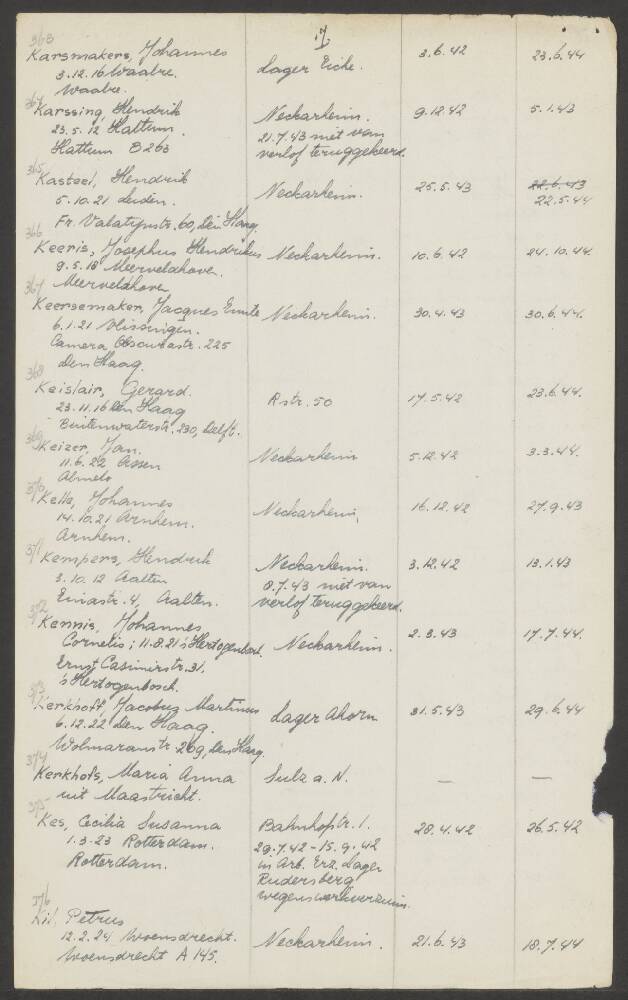 17
363
Karsmakers, Johannes Lager Eiche. 3.6.42 23.6.44
3.12.16 Waalre.
Waalre.
364
Karssing, Hendrik Neckarheim. 9.12.42 5.1.43
23.5.12 Hattem. 21.7.43 niet van
Hattem B 263 verlof teruggekeerd.
365
Kasteel, Hendrik Neckarheim. 25.5.43 22.6.43
5.10.21 Leiden. 22.5.44
Fr. Valatijnstr. 60, Den Haag.
366
Keeris, Josephus Hendrikus Neckarheim. 10.6.42 24.10.44
9.5.18 Meerveldhoven.
Meerveldhoven
367
Keersemaker, Jacques Emile Neckarheim. 30.4.43 30.6.44.
6.1.21 Vlissingen.
Camera Obscurastr. 225
Den Haag.
368
Keislair, Gerard. Rstr. 50 17.5.42 23.6.44.
23.11.16 Den Haag
Buitenwaterstr. 230, Delft.
369
Keizer, Jan. Neckarheim 5.12.42 3.3.44.
11.6.22 Assen
Almelo
370
Kelle, Johannes Neckarheim, 16.12.42 27.9.43
14.10.21 Arnhem.
Arnhem.
371
Kempers, Hendrik Neckarheim. 3.12.42 13.1.43
3.10.12 Aalten 8.7.43 niet van
Emmastr. 4, Aalten. verlof teruggekeerd.
372
Kennis, Johannes
Cornelis; 11.8.21 's Hertogenbosch. Neckarheim. 2.3.43 17.7.44.
Ernst Casimirstr. 31.
's Hertogenbosch.
373
Kerkhoff, Jacobus Martinus Lager Ahorn 31.5.43 29.6.44
6.12.22 Den Haag.
Wolmaranstr. 269, Den Haag.
374
Kerkhofs, Maria Anna Sulz a. N. — —
uit Maastricht.
375
Kes, Cecilia Susanna Bahnhofstr. 1. 28.4.42 26.5.42
1.3-23 Rotterdam. 29.7.42-15.9.42
Rotterdam. in Arb. Erz. Lager
Rudersberg
wegens werkverzuim.
376
Kil, Petrus
12.2.24 Woensdrecht. Neckarheim. 21.6.43 18.7.44
Woensdrecht A 145.